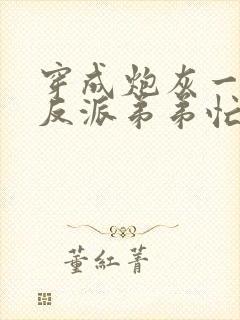 穿成炮灰一
反派弟弟忙
董紅菁